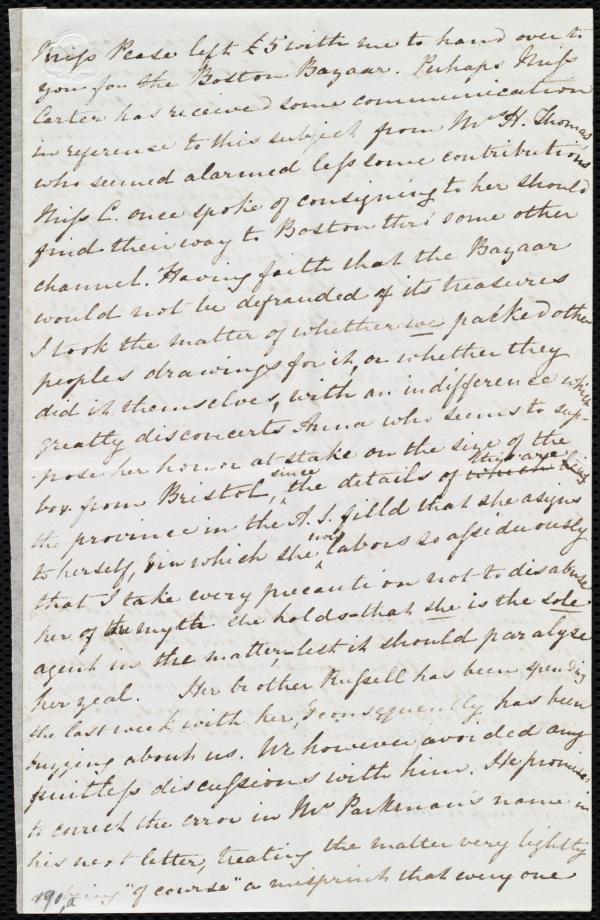 Miss Pease left £5 with me to hand over to
you for the Boston Bazaar. Perhaps Miss
Carter has received some communication
in reference to this subject from Mrs H. Thomas,
who seemed alarmed less some contributions
Miss C. once spoke of consigning to her should
find their way to Boston thro' some other
channel. Having faith that the Bazaar
would not be defrauded of its treasures
I took the matter of whether we packed other
peoples drawings for it, or whether they
did it themselves, with an indifference which
greatly disconcerts Anna who seems to sup-
pose her honor at stake on the size of the
box from Bristol, since the details of this are
the province in the A. S. field that she asigns
to herself, & in which she now labors so assiduously
that I take every precaution not to disabuse
her of the myth she holds that she is the sole
agent in the matter, lest it should paralyse
her zeal. Her brother Russell has been spending
the last week with her, & consequently has been
buzzing about us. We however avoided any
fruitless discussions with him. He promises
to correct the error in Mr Parkman's name in
his next letter, treating the matter very lightly
"of course" a misprint that every one